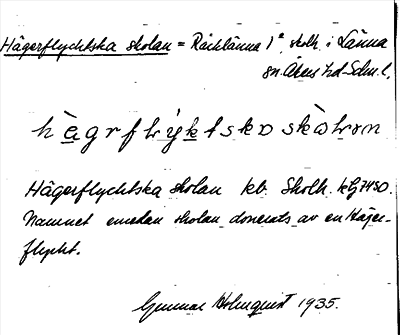 Hägerflychtska skolan = Räcklänna 1ª, skolh. i Länna
sn. Åkers hd. Sdm. l.
hàgrflẁyktskɒ skòlɒn
Hägerflychtska skolan kb. Skolh. kG7450.
Namnet emedan skolan donerats av en Häger-
flycht.
Gunnar Holmquist 1935.